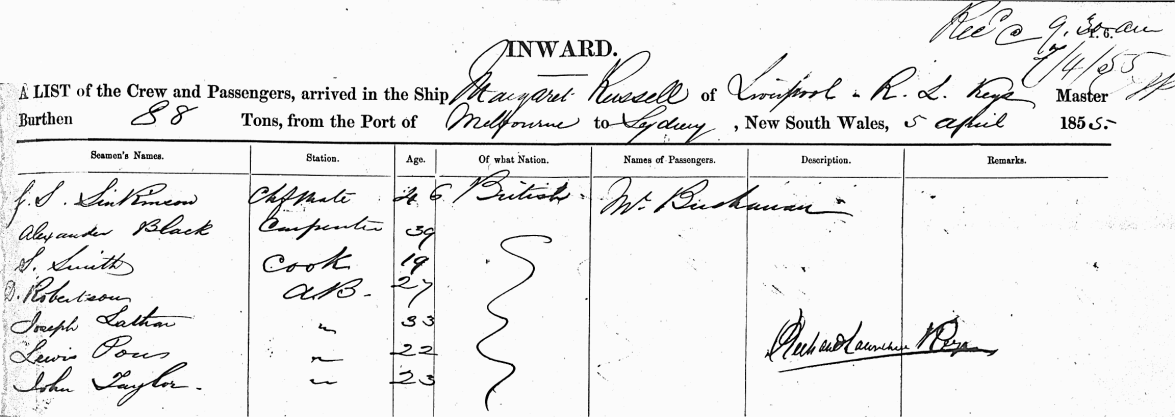 INWARD.
Recd @ 9.30 am
7/4/55
A LIST of the Crew and Passengers, arrived in the Ship Margaret Russell of Liverpool - R. L. Keys Master
Burthen 88 Tons, from the Port of Melbourne to Sydney, New South Wales, 5 April 1855-
Seamen's Names. Station. Age. Of what Nation. Names of Passengers. Description. Remarks.
J. S. Sinkinson Chf Mate 46 British Mr. Buchanan
Alexander Black Carpenter 39
S. Smith Cook 19
D. Robertson A.B- 27
Joseph Lathan " 33
Lewis Pous " 22
John Taylor. " 23
Richard Lawrence Keys